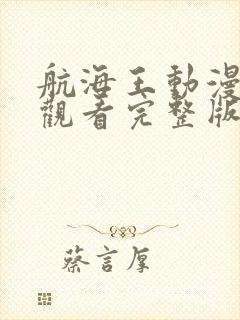 航海王動漫
觀看完整版
蔡言厚